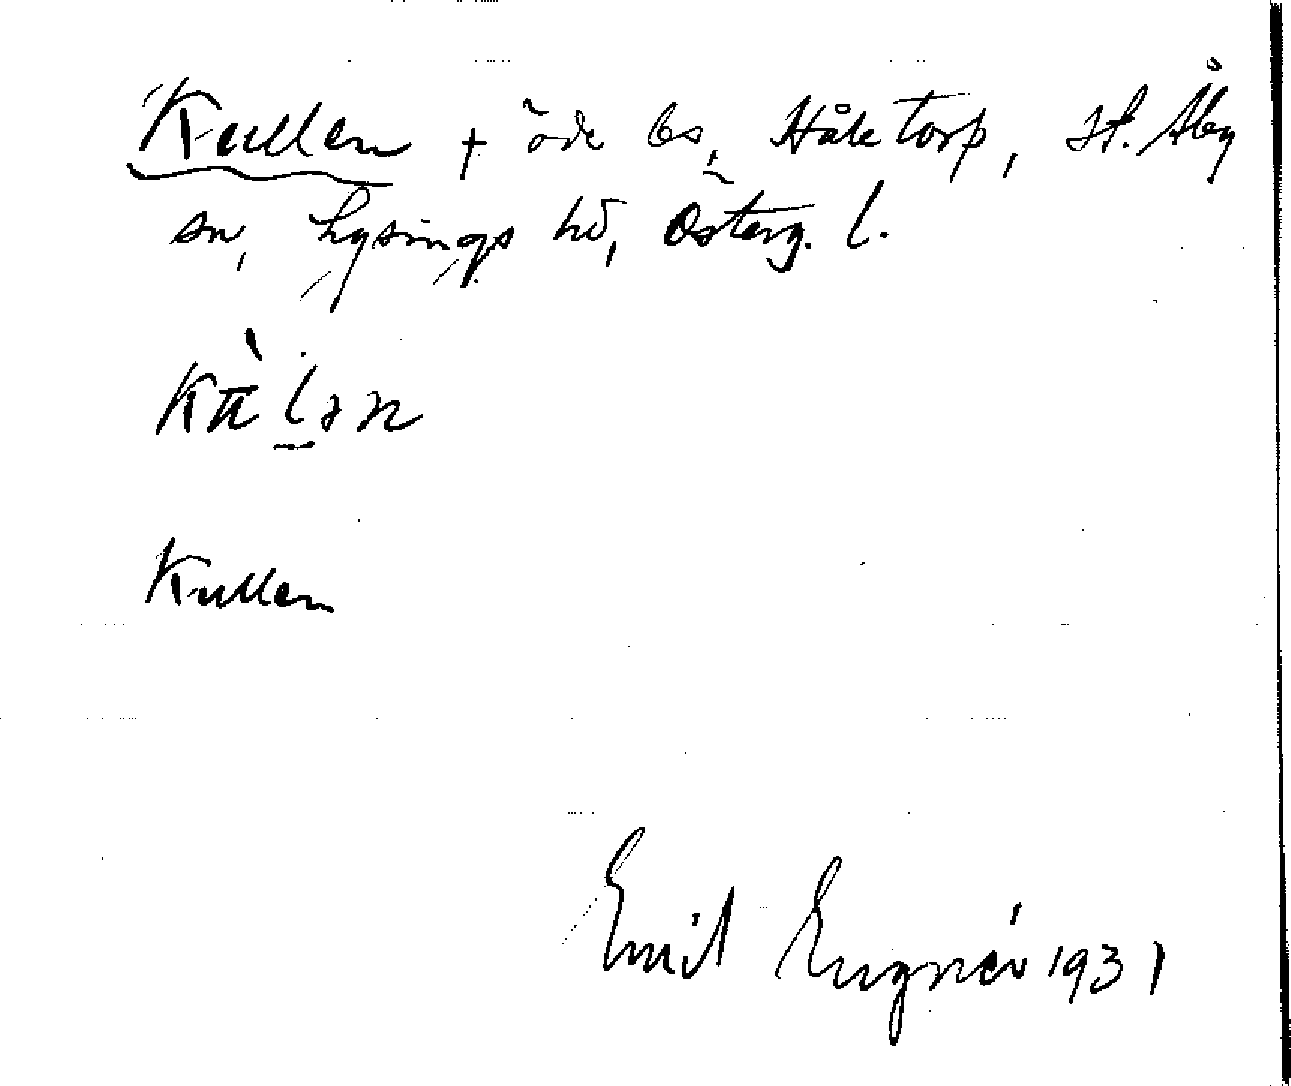 Kullen + öde bs, Håletorp, St. Åby
sn, Lysings hd, Österg. l.
Kullen
Emil Engnér 1931